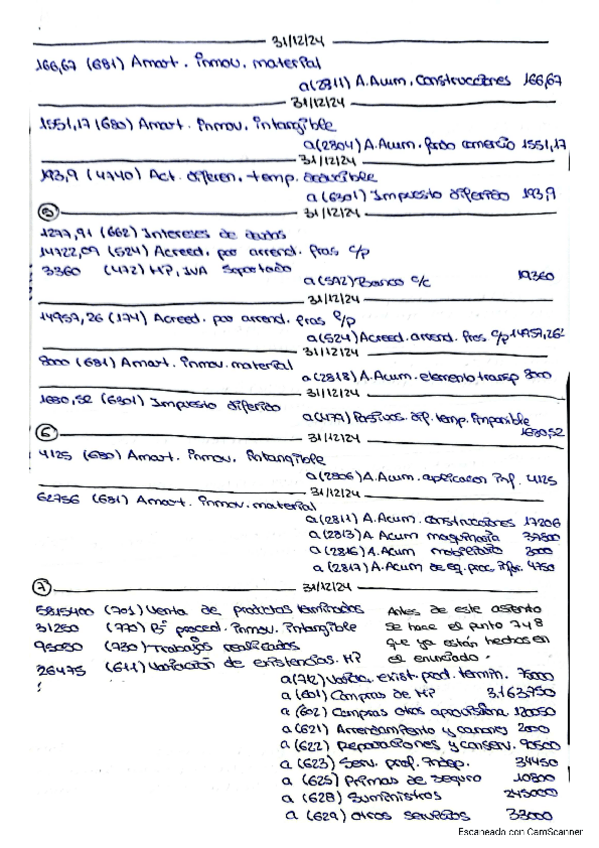 31/12/24
166,67 (681) Amort. inmov. material
a(2811) A.Acum. Construcciones 166,67
31/12/24
1551,17 (680) Amort. inmov. intangible
a(2804) A.Acum. fondo comercio 1551,17
31/12/24
193,9 (4740) Act. diferen. temp. deducible
a (6301) Impuesto diferido 193,9
5 31/12/24
1277,91 (662) Intereses de deudas
14722,09 (524) Acreed. por arrend. fras c/p
3360 (472) HP, IVA Soportado
a(572) Banco c/c 19360
31/12/24
14957,26 (174) Acreed. por arrend. fras l/p
a(524) Acreed. arrend. fras c/p 14957,26
31/12/24
8000 (681) Amort. inmov. material
a(2818) A.Acum. elemento transp 8000
31/12/24
1680,52 (6301) Impuesto diferido
a(479) Pasivos. dif. temp. imponible
1680,52
6 31/12/24
4125 (680) Amort. inmov. intangible
a(2806) A.Acum. aplicacion inf. 4125
31/12/24
62756 (681) Amort. inmov. material
a(2811) A.Acum. construcciones 17206
a(2813) A Acum maquinaria 37800
a(2816) A.Acum mobiliario 3000
a(2817) A.Acum de eq. proc. infor. 4750
7 31/12/24
5815400 (701) Venta de productos terminados
31250 (770) Bº proced. inmov. intangible
95050 (730) Trabajos realizados
26475 (611) Variación de existencias. MP
Antes de este asiento
se hace el punto 7 y 8
que ya están hechos en
el enunciado.
a(712) Variac. exist. prod. termin. 75000
a (601) Compras de MP 3.163.750
a (602) Compras otros aprovisiona. 120050
a (621) Arrendamiento y canones 2000
a (622) Reparaciones y conserv. 90500
a (623) Serv. prof. indep. 34450
a (625) Primas de seguro 10800
a (628) Suministros 245000
a (629) otros servicios 33000
Escaneado con CamScanner